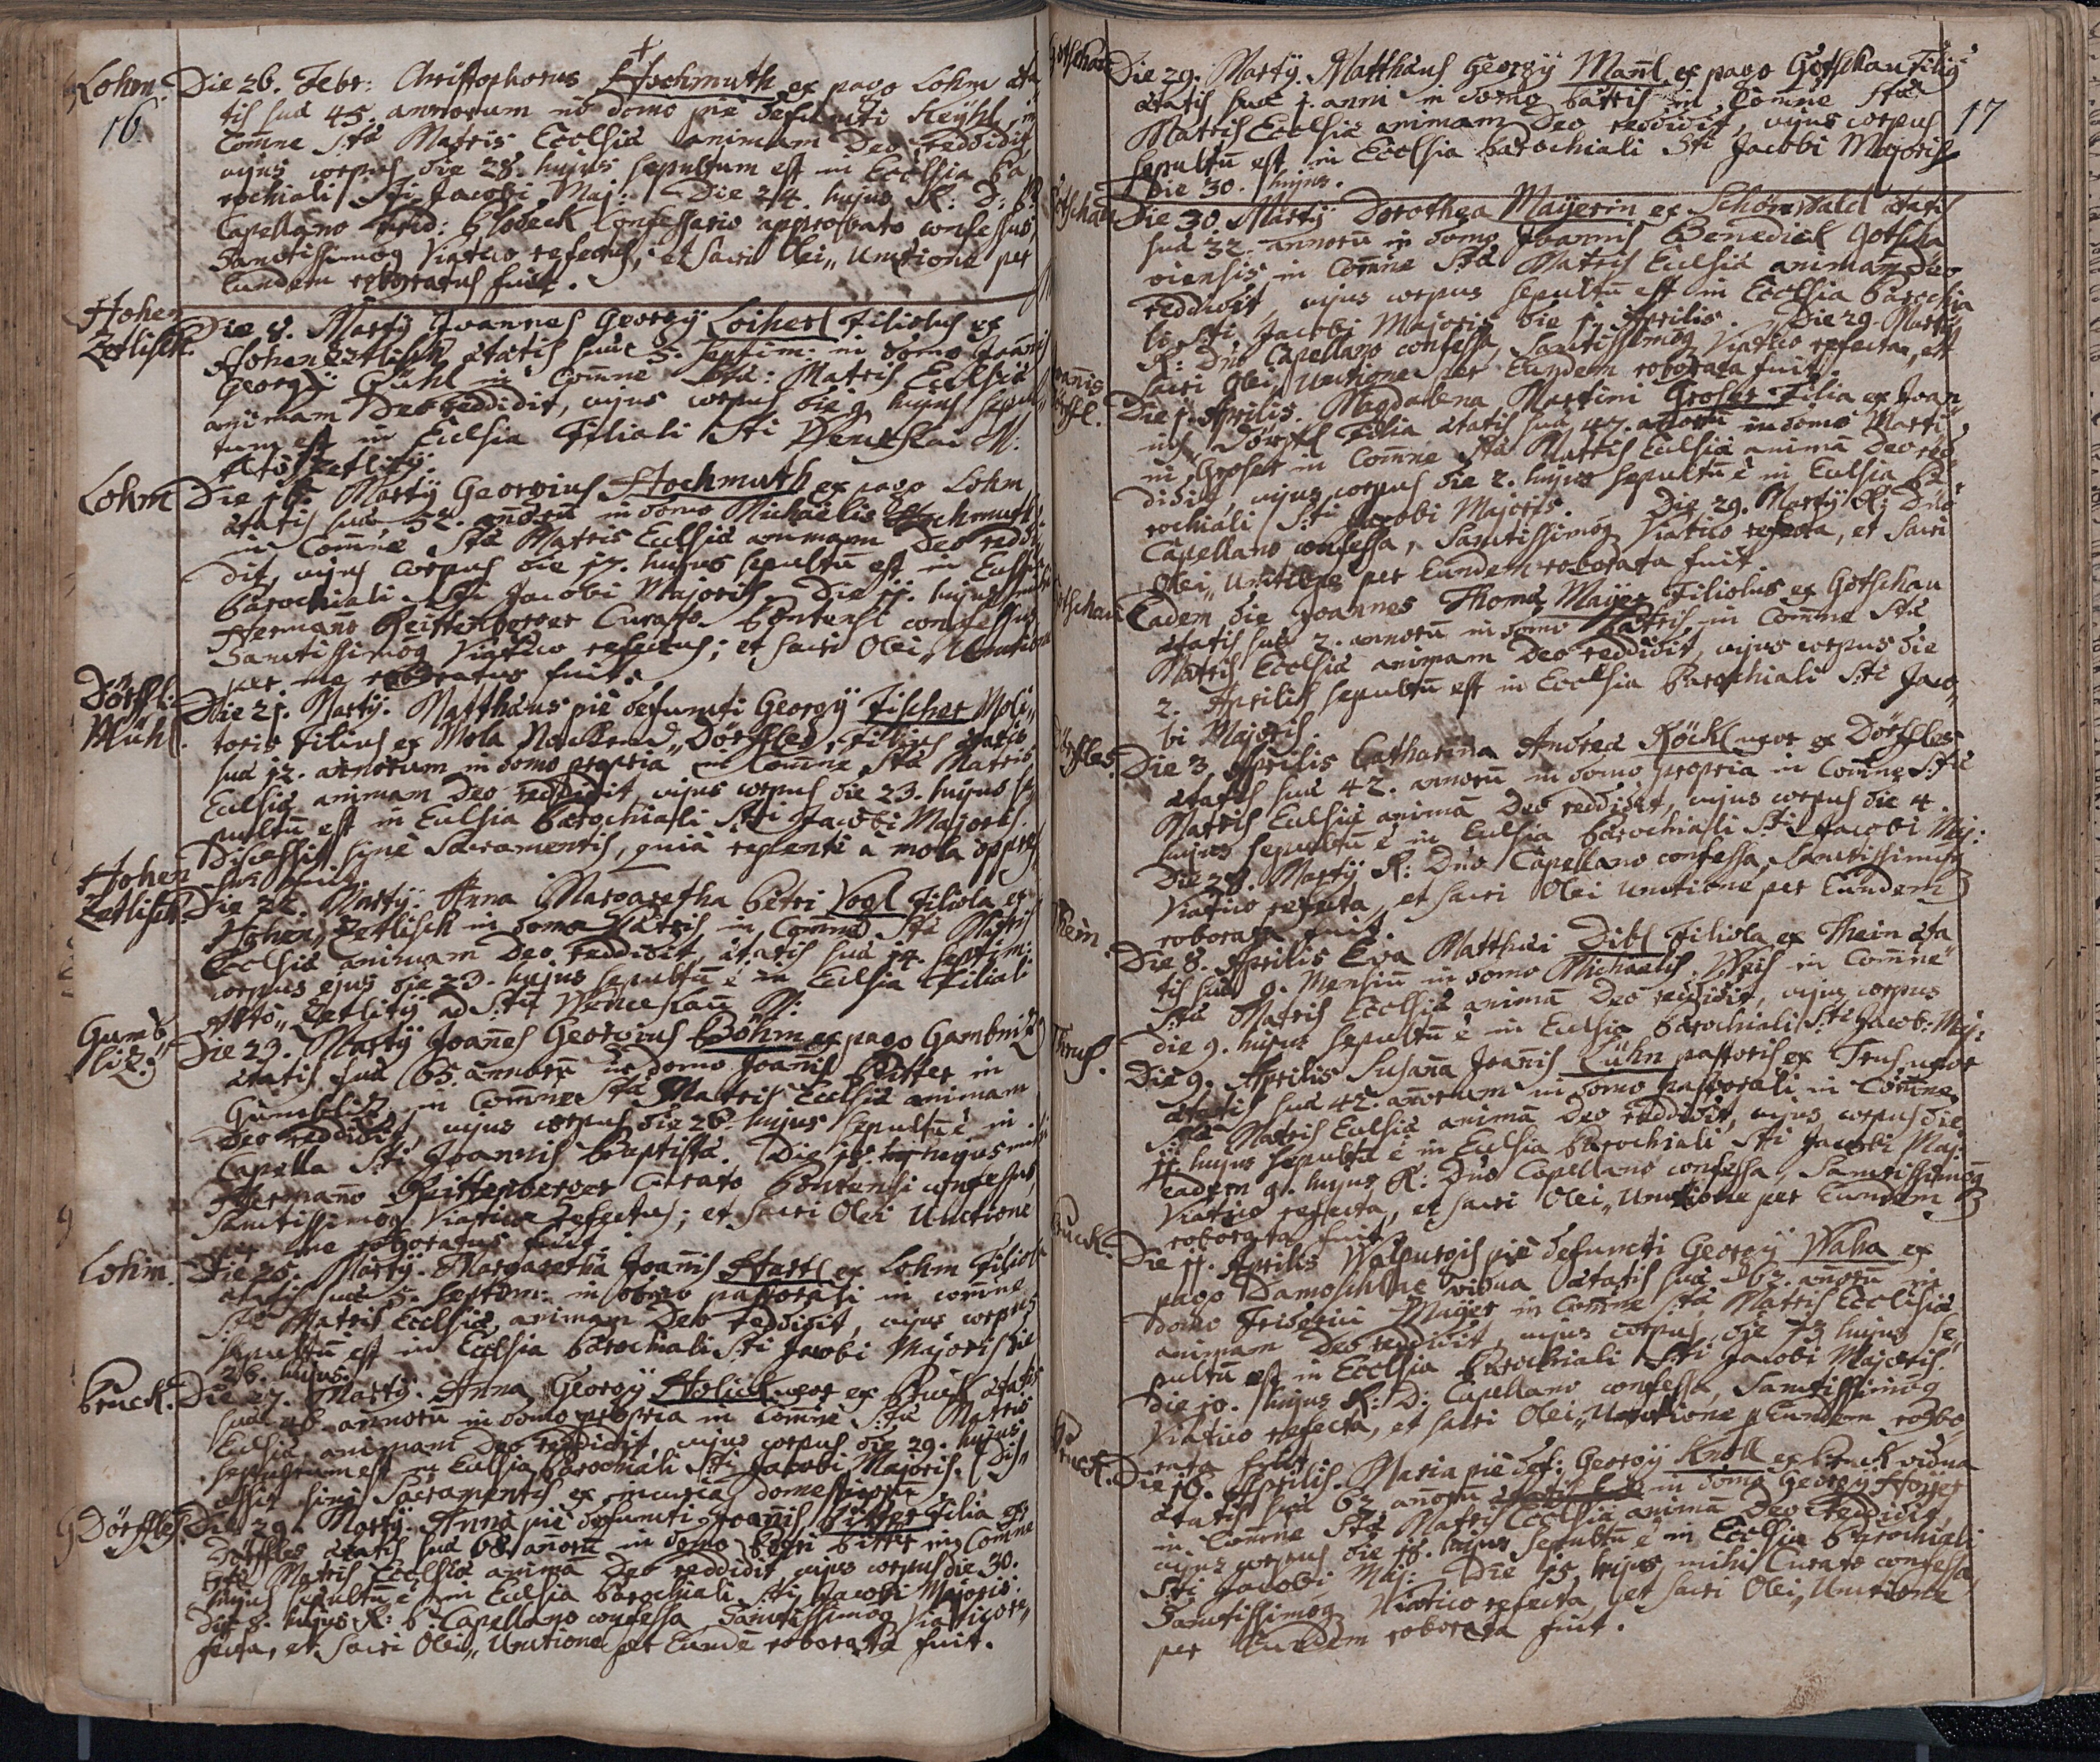 Lohm
16.
Die 26. Febr: Christophorus Hochmuth ex pago Lohm æta
tis suæ 45. annorum in domo piè defuncti Keÿhl, in
Comñe Stæ Matris Ecclsiæ animam Deo reddidit
cujus corpus die 28. hujus sepultum est in Ecclsia Pa
rochiali Sti Jacobi Maj: Die 24. hujus R: D:
Capellano Frid: Blobeck Confessario approbato confessus
Sanctissimoq Viatico refectus, et Sacri Olei„ Unctione per
Eundem roboratus fuit.
Hohen
Zetlisch.
Die 8. Martÿ Joannes Georgÿ Loiherl Filiolus ex
Hohenzetlisch ætatis suæ 3. septim: in domo Joannis
Georgÿ Gühl in Comñe Stæ: Matris Ecclsiæ
animam Deo reddidit, cujus corpus die 9. hujus sepul
tum est in Ecclsia Filiali Sti Wenceslai M:
Alto Zetlitÿ.
Lohm
Die 16. Martÿ Georgius Hochmuth ex pago Lohm
ætatis suæ 52. añorũ in domo Michaelis Hochmuth
in Comñe Stæ Matris Ecclsiæ animam Deo reddi
dit, cujus corpus die 17. hujus sepultũ est in Ecclsia
Parochiali Sti Jacobi Majoris. Die 11. hujus
Hermano Reittenberger Curato Pontensi confessus
Sanctissimoq Viatico refectus; et Sacri Olei„ Unctione
per me roboratus fuit.
Dörfl:
Mühl.
Die 21. Martÿ. Matthæus piè defuncti Georgÿ Fischer Moli„
toris Filius ex Mola Dörffles, Filius ætatis
suæ 12. annorum in domo propria in Comñe Stæ Matris
Ecclsiæ animam Deo reddidit cujus corpus die 23. hujus se
pultũ est in Ecclsia Parochiali Sti Jacobi Majoris.
Discessit sine Sacramentis, quia repente à mola oppres
sus fuit.
Hohen
Zetlisch.
Die 22. Martÿ. Anna Margaretha Petri Vogl Filiola ex
Hohen„Zetlisch in domo Patris, in Comñe Stæ Matris
Ecclsiæ animam Deo reddidit, ætatis suæ 14. septim:
corpus ejus die 23. hujus sepultũ ẽ in Ecclsia Filiali
Alto„ Zetlitÿ ad Stũ Wenceslaũ M:
Gamb
liz.
Die 23. Martÿ Joañes Georgius Böhm ex pago Gambniz
ætatis suæ 65. annorũ in domo Joañis Pitter in
Gumpliz, in Comñe Stæ Matris Ecclsiæ animam
Deo reddidit, cujus corpus die 26. hujus sepultũ ẽ in
Capella Sti Joannis Baptistæ. Die 18. hujus
Hermanno Reittenberger Curato Pontensi confessus
Sanctissimoq Viatico refectus; et Sacri Olei Unctione
per me roboratus fuit.
Lohm.
Die 25. Martÿ. Margaretha Joañis Hartl ex Lohm Filiola
ætatis suæ 5. septim: in domo pastorali in comñe
Stæ Matris Ecclsiæ, animam Deo reddidit, cujus corpus
sepultũ est in Ecclsia Parochiali Sti Jacobi Majoris die
26. hujus.
Bruck.
Die 27. Martÿ. Anna Georgÿ Holick uxor ex Bruck ætatis
suæ 46. annorũ in domo propria in Comñe Stæ Matris
Ecclsiæ animam Deo reddidit, cujus corpus die 29. hujus
sepultum est in Ecclsia Parochiali Sti Jacobi Majoris. Disc
essit sine Sacramentis ex incuria domesticorũ.
Dörffles
Die 29. Martÿ. Anna piè defuncti Joañis Pitter Filia ex
Dörffles ætatis suæ 68. añorũ in domo Petri Pitter in Comñe
Stæ Matris Ecclsiæ animã Deo reddidit, cujus corpus die 30.
hujus sepultũ ẽ in Ecclsia Parochiali Sti Jacobi Majoris.
Die 8. hujus R: D: Capellano confessa Sanctissimoq Viatico re„
fecta, et Sacri Olei„ Unctione per Eundẽ roborata fuit.
Gotschau
17
Die 29. Martÿ. Matthæus Georgÿ Mañl ex pago Gotschau Filiꝰ
ætatis suæ 1. anni in domo Patris in Comñe Stæ
Matris Ecclsiæ animam Deo reddidit, cujus corpus
Sepultũ est in Ecclsia Parochiali Sti Jacobi Majoris
Die 30. hujus.
Gotschau
Die 30. Martÿ Dorothea Maÿerin ex Schönwald ætatis
suæ 32. annorũ in domo Joannis Benedick Gotscha
viensis, in Comñe Stæ Matris Ecclsiæ animam Deo
reddidit, cujus corpus sepultũ est in Ecclsia Parochia
li Sti Jacobi Majoris die 1. Aprilis. Die 29. Martÿ
R: Dno Capellano confessa, Sanctissimoq Viatico refecta, et
Sacri Olei„ Unctione per Eundem roborata fuit.
Joañis
Dörfl.
Die 1. Aprilis. Magdalena Martini Groser Filia ex Joan
nis Dörfl Filia ætatis suæ 47. añorũ in domo Marti„
ni Groser in Comñe Stæ Matris Ecclsiæ animã Deo red
didit, cujus corpus die 2. hujus sepultũ ẽ in Ecclsia Pa
rochiali Sti Jacobi Majoris. Die 29. Martÿ R: Dno
Capellano confessa, Sanctissimoq Viatico refecta, et Sacri
Olei„ Unctione per Eundem roborata fuit.
Gotschau
Eadem die Joannes Thomæ Maÿer Filiolus ex Gotschau
ætatis suæ 2. annorũ in domo Patris in Comñe Stæ
Matris Ecclsiæ animam Deo reddidit, cujus corpus die
2. Aprilis sepultũ est in Ecclsia Parochiali Sti Jaco„
bi Majoris.
Dörffles.
Die 3. Aprilis Catharina Andreæ Röckl uxor ex Dörffles
ætatis suæ 42. annorũ in domo propria in Comñe Stæ
Matris Ecclsiæ animã Deo reddidit, cujus corpus die 4.
hujus sepultũ ẽ in Ecclsia Parochiali Sti Jacobi Maj:
Die 28. Martÿ R: Dno Capellano confessa, Sanctissimoq
Viatico refecta, et Sacri Olei Unctione per Eundem
roborata fuit.
Thein.
Die 8. Aprilis Eva Matthæi Dibl Filiola ex Thein æta
tis suæ 9. Mensiũ in domo Michaelis in Comñe
Stæ Matris Ecclsiæ animã Deo reddidit, cujus corpus
die 9. hujus sepultũ ẽ in Ecclsia Parochiali Sti Jacob: Maj:
Thrus.
Die 9. Aprilis Susaña Joañis Kühn pastoris ex Trus uxor
ætatis suæ 42. añorum in domo pastorali in Comñe
Stæ Matris Ecclsiæ animã Deo reddidit, cujus corpus die
11. hujus sepultũ ẽ in Ecclsia Parochiali Sti Jacobi Maj:
eadem 9. hujus R: Dno Capellano confessa, Sanctissimoq
Viatico refecta, et Sacri Olei„ Unctione per Eundem
roborata fuit.
Bruck.
Die 11. Aprilis Walpurgis piè defuncti Georgÿ Waha ex
pago Damoschlac vidua ætatis suæ 62. añorũ in
domo Friderici Maÿer in Comñe Stæ Matris Ecclsiæ
animam Deo reddidit, cujus corpus die 13 hujus se„
pultũ est in Ecclsia Parochiali Sti Jacobi Majoris.
Die 10. hujus R: D: Capellano confessa, Sanctissimoq
Viatico refecta, et Sacri Olei„ Unctione p Eundem robo„
rata fuit.
Bruck.
Die 16. Aprilis. Maria piè def: Georgÿ Knoll ex Bruck vidua
ætatis suæ 62 añorũ in domo Georgÿ Hoÿer
in Comñe Stæ Matris Ecclsiæ animã Deo reddidit,
cujus corpus die 18. hujus sepultũ ẽ in Ecclsia Parochiali
Sti Jacobi Maj: Die 15. hujus mihi Curato confessa,
Sanctissimoq Viatico refecta, et Sacri Olei„ Unctione
per Eundem roborata fuit.